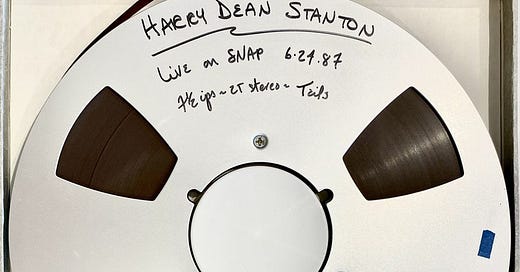 HARRY DEAN STANTON
Live on SNAP 6.24.87
7½ ips ~ 2T stereo ~ Tails